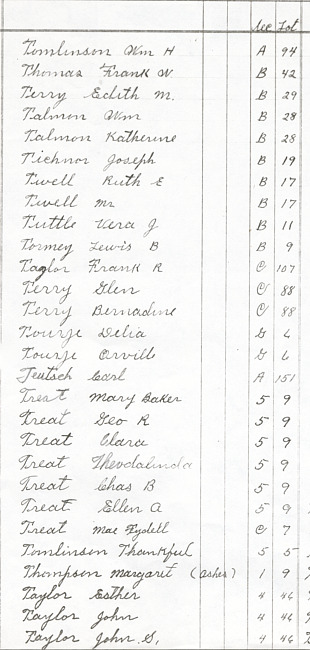 Sec Lot
Tomlinson Wm H A 94
Thomas Frank W B 42
Terry Edith M. B 29
Talmon Wm B 28
Talmon Katherine B 28
Tichnor Joseph B 19
Twell Ruth E B 17
Twell Mr B 17
Tuttle Vera J B 11
Tormey Lewis B B 9
Taylor Frank R C 107
Terry Glen C 88
Terry Bernadine C 88
Tourje Delia G 6
Tourje Orvill G 6
Teutsch Carl A 151
Treat Mary Baker 5 9
Treat Geo R 5 9
Treat Clara 5 9
Treat Theodalinda 5 9
Treat Chas B 5 9
Treat Ellen A 5 9
Treat Mae Fydell C 7
Tomlinson Thankful 5 5
Thompson Margarit (ashes) 1 9
Taylor Esther 4 46
Taylor John 4 46
Taylor John S, 4 46